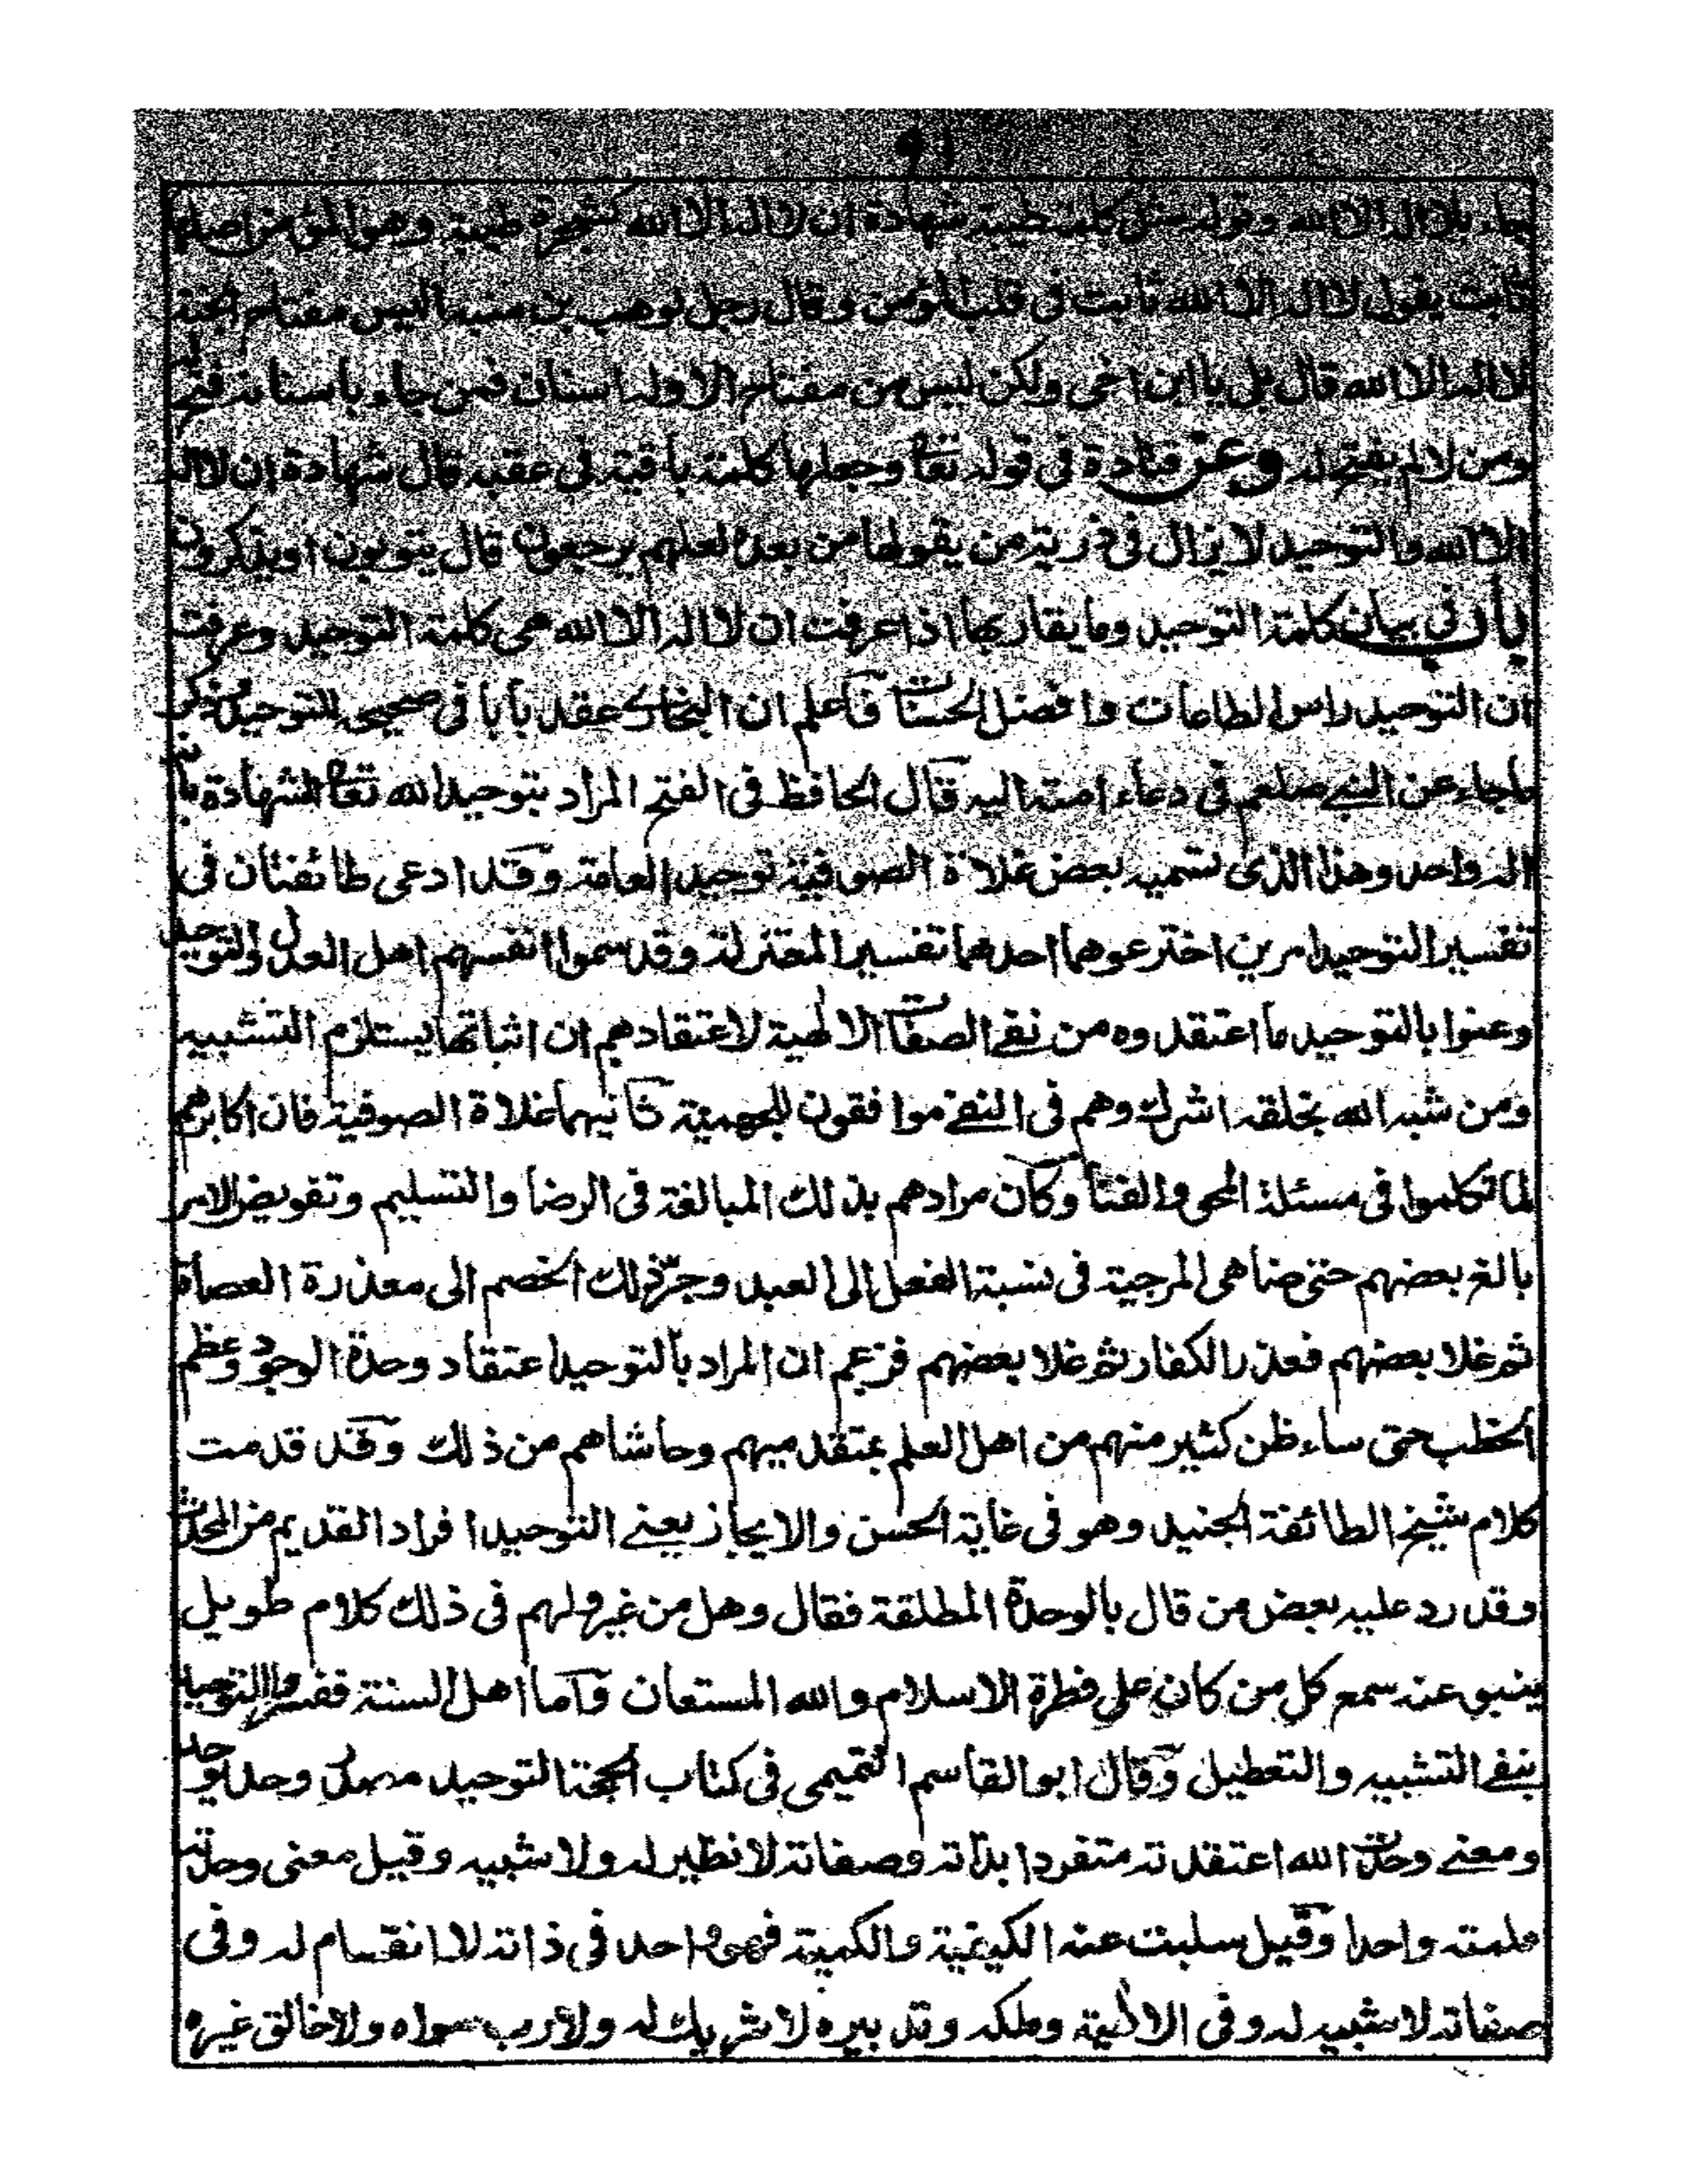 جاء بلا اله الا الله وقوله مثل كلمة طيبة شهادة ان لا اله الا الله كشجرة طيبة وهو المؤمن اصلها
ثابت يقول لا اله الا الله ثابت فى قلب المؤمن وقال رجل لوهب بن منبه اليس مفتاح الجنة
لا اله الا الله قال بلى يا ابن اخى ولكن ليس من مفتاح الا وله اسنان فمن جاء باسنانه فتح له
ومن لا لم يفتح له وعن قتادة فى قوله تعا وجعلها كلمة باقية فى عقبه قال شهادة ان لا اله
الا الله والتوحيد لا يزال فى ذريته من يقولها من بعده لعلهم يرجعون قال يتوبون او يذكرون
باب فى بيان كلمة التوحيد وما يقاربها اذا عرفت ان لا اله الا الله هى كلمة التوحيد وعرفت
ان التوحيد راس الطاعات وافضل الحسنات فاعلم ان البخارى عقد بابا فى صحيحه للتوحيد
ماجاء عن النبى صلعم فى دعاء امته اليه قال الحافظ فى الفتح المراد بتوحيد الله تعا الشهادة بانه
اله واحد وهذا الذى تسميه بعض غلاة الصوفية توحيد العامة وقد ادعى طائفتان فى
تفسير التوحيد امرين اخترعوهما احدهما تفسير المعتزلة وقد سموا انفسهم اهل العدل والتوحيد
وعنوا بالتوحيد ما اعتقدوه من نفى الصفات الالهية لاعتقادهم ان اثباتها يستلزم التشبيه
ومن شبه الله بخلقه اشرك وهم فى النفى موافقون للجهمية ثانيهما غلاة الصوفية فان اكابرهم
لما تكلموا فى مسئلة المحو والفنا وكان مرادهم بذلك المبالغة فى الرضا والتسليم وتفويض الامر
بالغ بعضهم حتى ضاهى المرجية فى نسبة الفعل الى العبد وجر ذلك الخصم الى معذرة العصاة
ثم غلا بعضهم فعذر الكفار ثم غلا بعضهم فزعم ان المراد بالتوحيد اعتقاد وحدة الوجود وعظم
الخطب حتى ساء ظن كثير منهم من اهل العلم بمتقدميهم وحاشاهم من ذلك وقد قدمت
كلام شيخ الطائفة الجنيد وهو فى غاية الحسن والايجاز يعنى التوحيد افراد القديم من المحدث
وقد رد عليه بعض من قال بالوحدة المطلقة فقال وهل من غير ولهم فى ذلك كلام طويل
ينبو عنه سمع كل من كان على فطرة الاسلام والله المستعان واما اهل السنة ففسروا التوحيد
بنفى التشبيه والتعطيل وقال ابو القاسم التميمى فى كتاب الحجة التوحيد مصدر وحد يوحد
ومعنى وحدت الله اعتقدته متفردا بذاته وصفاته لا نظير له ولا شبيه وقيل معنى وحدته
علمته واحدا وقيل سلبت عنه الكيفية والكمية فهو واحد فى ذاته لا انقسام له وفى
صفاته لا شبيه له وفى الالهية وملكه وتدبيره لا شريك له ولا رب سواه ولا خالق غيره